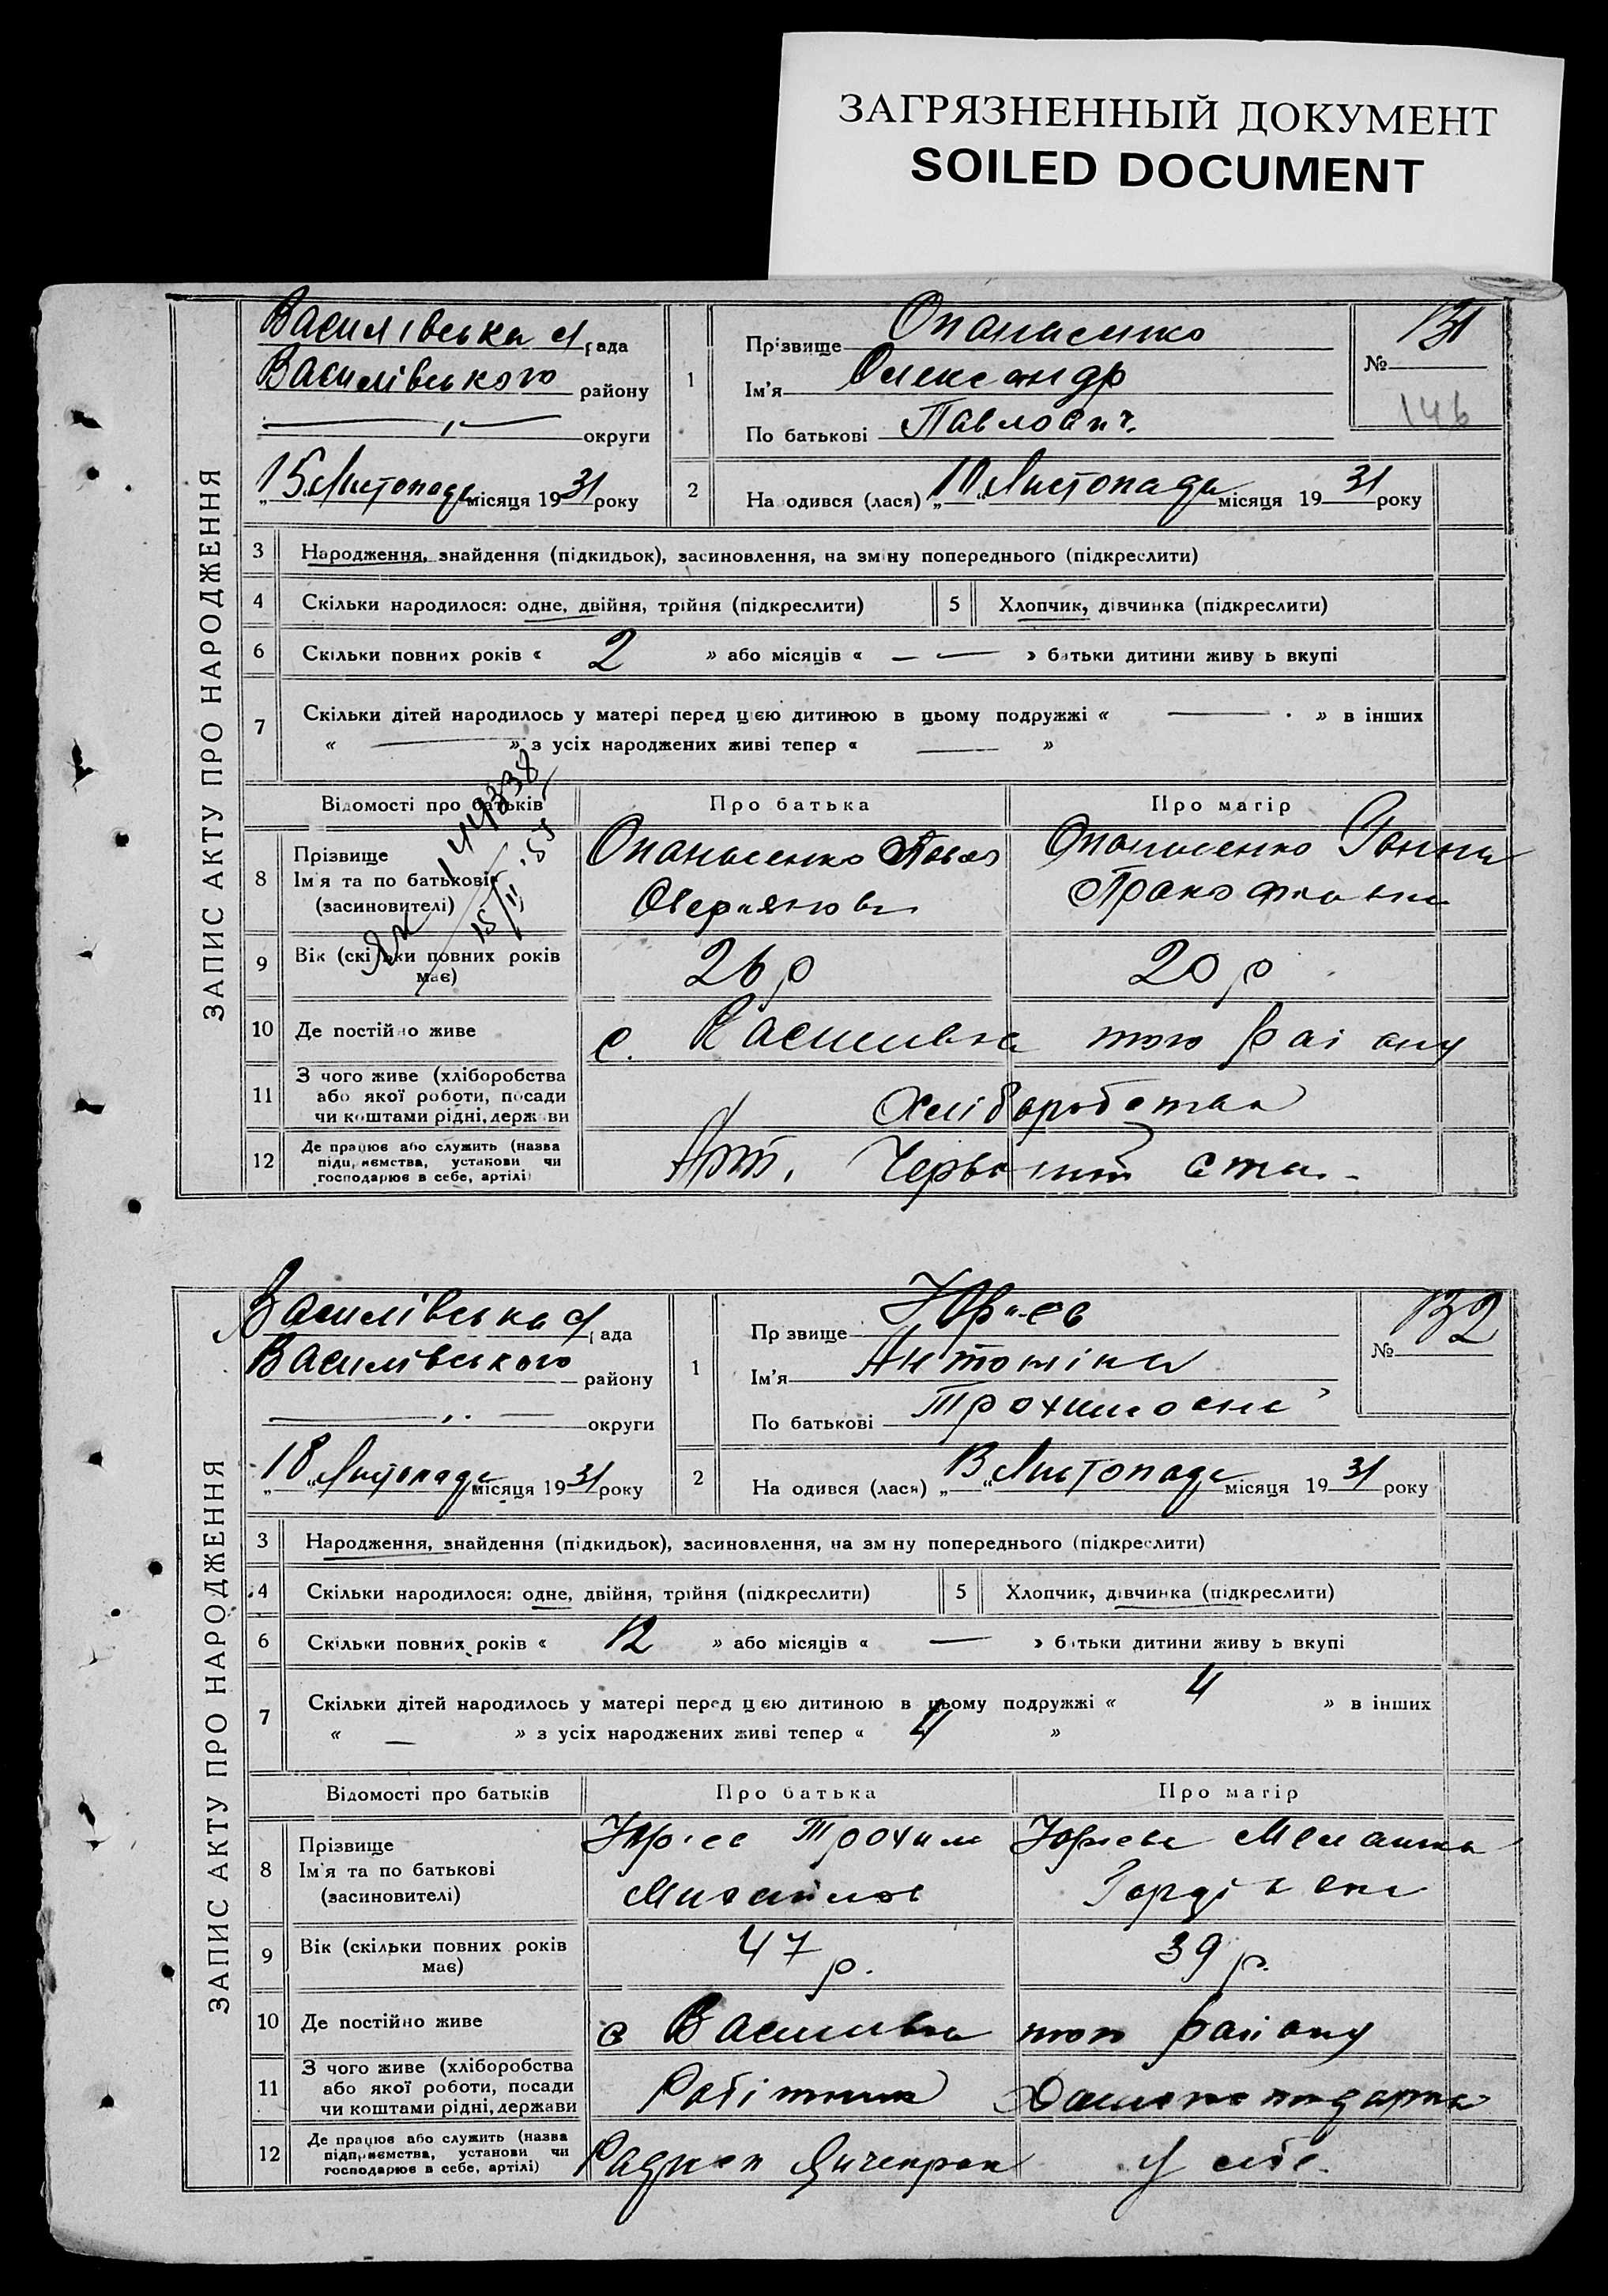 ЗАГРЯЗНЕННЫЙ ДОКУМЕНТ
SOILED DOCUMENT
ЗАПИС АКТУ ПРО НАРОДЖЕННЯ
Василівська рада
Василівського району
округи
15 Листопада місяця 1931 року
1
Прізвище Опанасенко
Ім'я Олександр
По батькові Павлович
№ 131
146
2
На одився (лася) „10“ Листопада місяця 1931 року
3 Народження, знайдення (підкидьок), засиновлення, на зміну попереднього (підкреслити)
4 Скільки народилося: одне, двійня, трійня (підкреслити) 5 Хлопчик, дівчинка (підкреслити)
6 Скільки повних років « 2 » або місяців « — — » батьки дитини живу ь вкупі
7 Скільки дітей народилось у матері перед цією дитиною в цьому подружжі « — » в інших
« — » з усіх народжених живі тепер « — »
Відомості про батьків Про батька Про матір
8 Прізвище
Ім'я та по батькові
(засновителі)
Опанасенко Павло
Опанасенко Ганна
9 Вік (скільки повних років має) 26 р 20 р
10 Де постійно живе с. Василівка того району
11 З чого живе (хліборобства
або якої роботи, посади
чи коштами рідні, держави
Хліборобства
12 Де працює або служить (назва
підприємства, установи чи
господарює в себе, артілі)
Арт. Червоний
ЗАПИС АКТУ ПРО НАРОДЖЕННЯ
Василівська рада
Василівського району
округи
18 „ Листопада місяця 1931 року
1
Пр звище Юр'єв
Ім'я Антоніна
По батькові
№ 132
2
На одився (лася) „13“ Листопада місяця 1931 року
3 Народження, знайдення (підкидьок), засиновлення, на зм ну попереднього (підкреслити)
4 Скільки народилося: одне, двійня, трійня (підкреслити) 5 Хлопчик, дівчинка (підкреслити)
6 Скільки повних років « 12 » або місяців « — » батьки дитини живу ь вкупі
7 Скільки дітей народилось у матері перед цією дитиною в цьому подружжі « 4 » в інших
« — » з усіх народжених живі тепер « 4 »
Відомості про батьків Про батька Про матір
8 Прізвище
Ім'я та по батькові
(засиновителі)
Юр'єв Трохим
Михайлов
Юр'єва Меланка
Гордіївна
9 Вік (скільки повних років має) 47 р. 39 р.
10 Де постійно живе с Василівка того району
11 З чого живе (хліборобства
або якої роботи, посади
чи коштами рідні, держави
Робітник
12 Де працює або служить (назва
підприємства, установи чи
господарює в себе, артілі)
У себе.